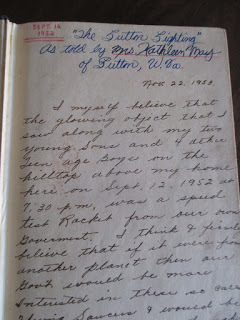 SEPT. 12
1952
"The Sutton Sighting"
As told by Mrs. Kathleen May
of Sutton, W. Va
Nov. 22, 1952.
I myself believe that
the glowing object that I
saw along with my two
young Sons and 4 other
teen age Boys on the
hilltop above my home
here on Sept. 12, 1952 at
7:30 p.m, was a
test Rocket from our own
Goverment. I think & firmly
believe that if it were from
another planet then our
Govt. would be more
Intrested in these so called
flying Saucers & would be